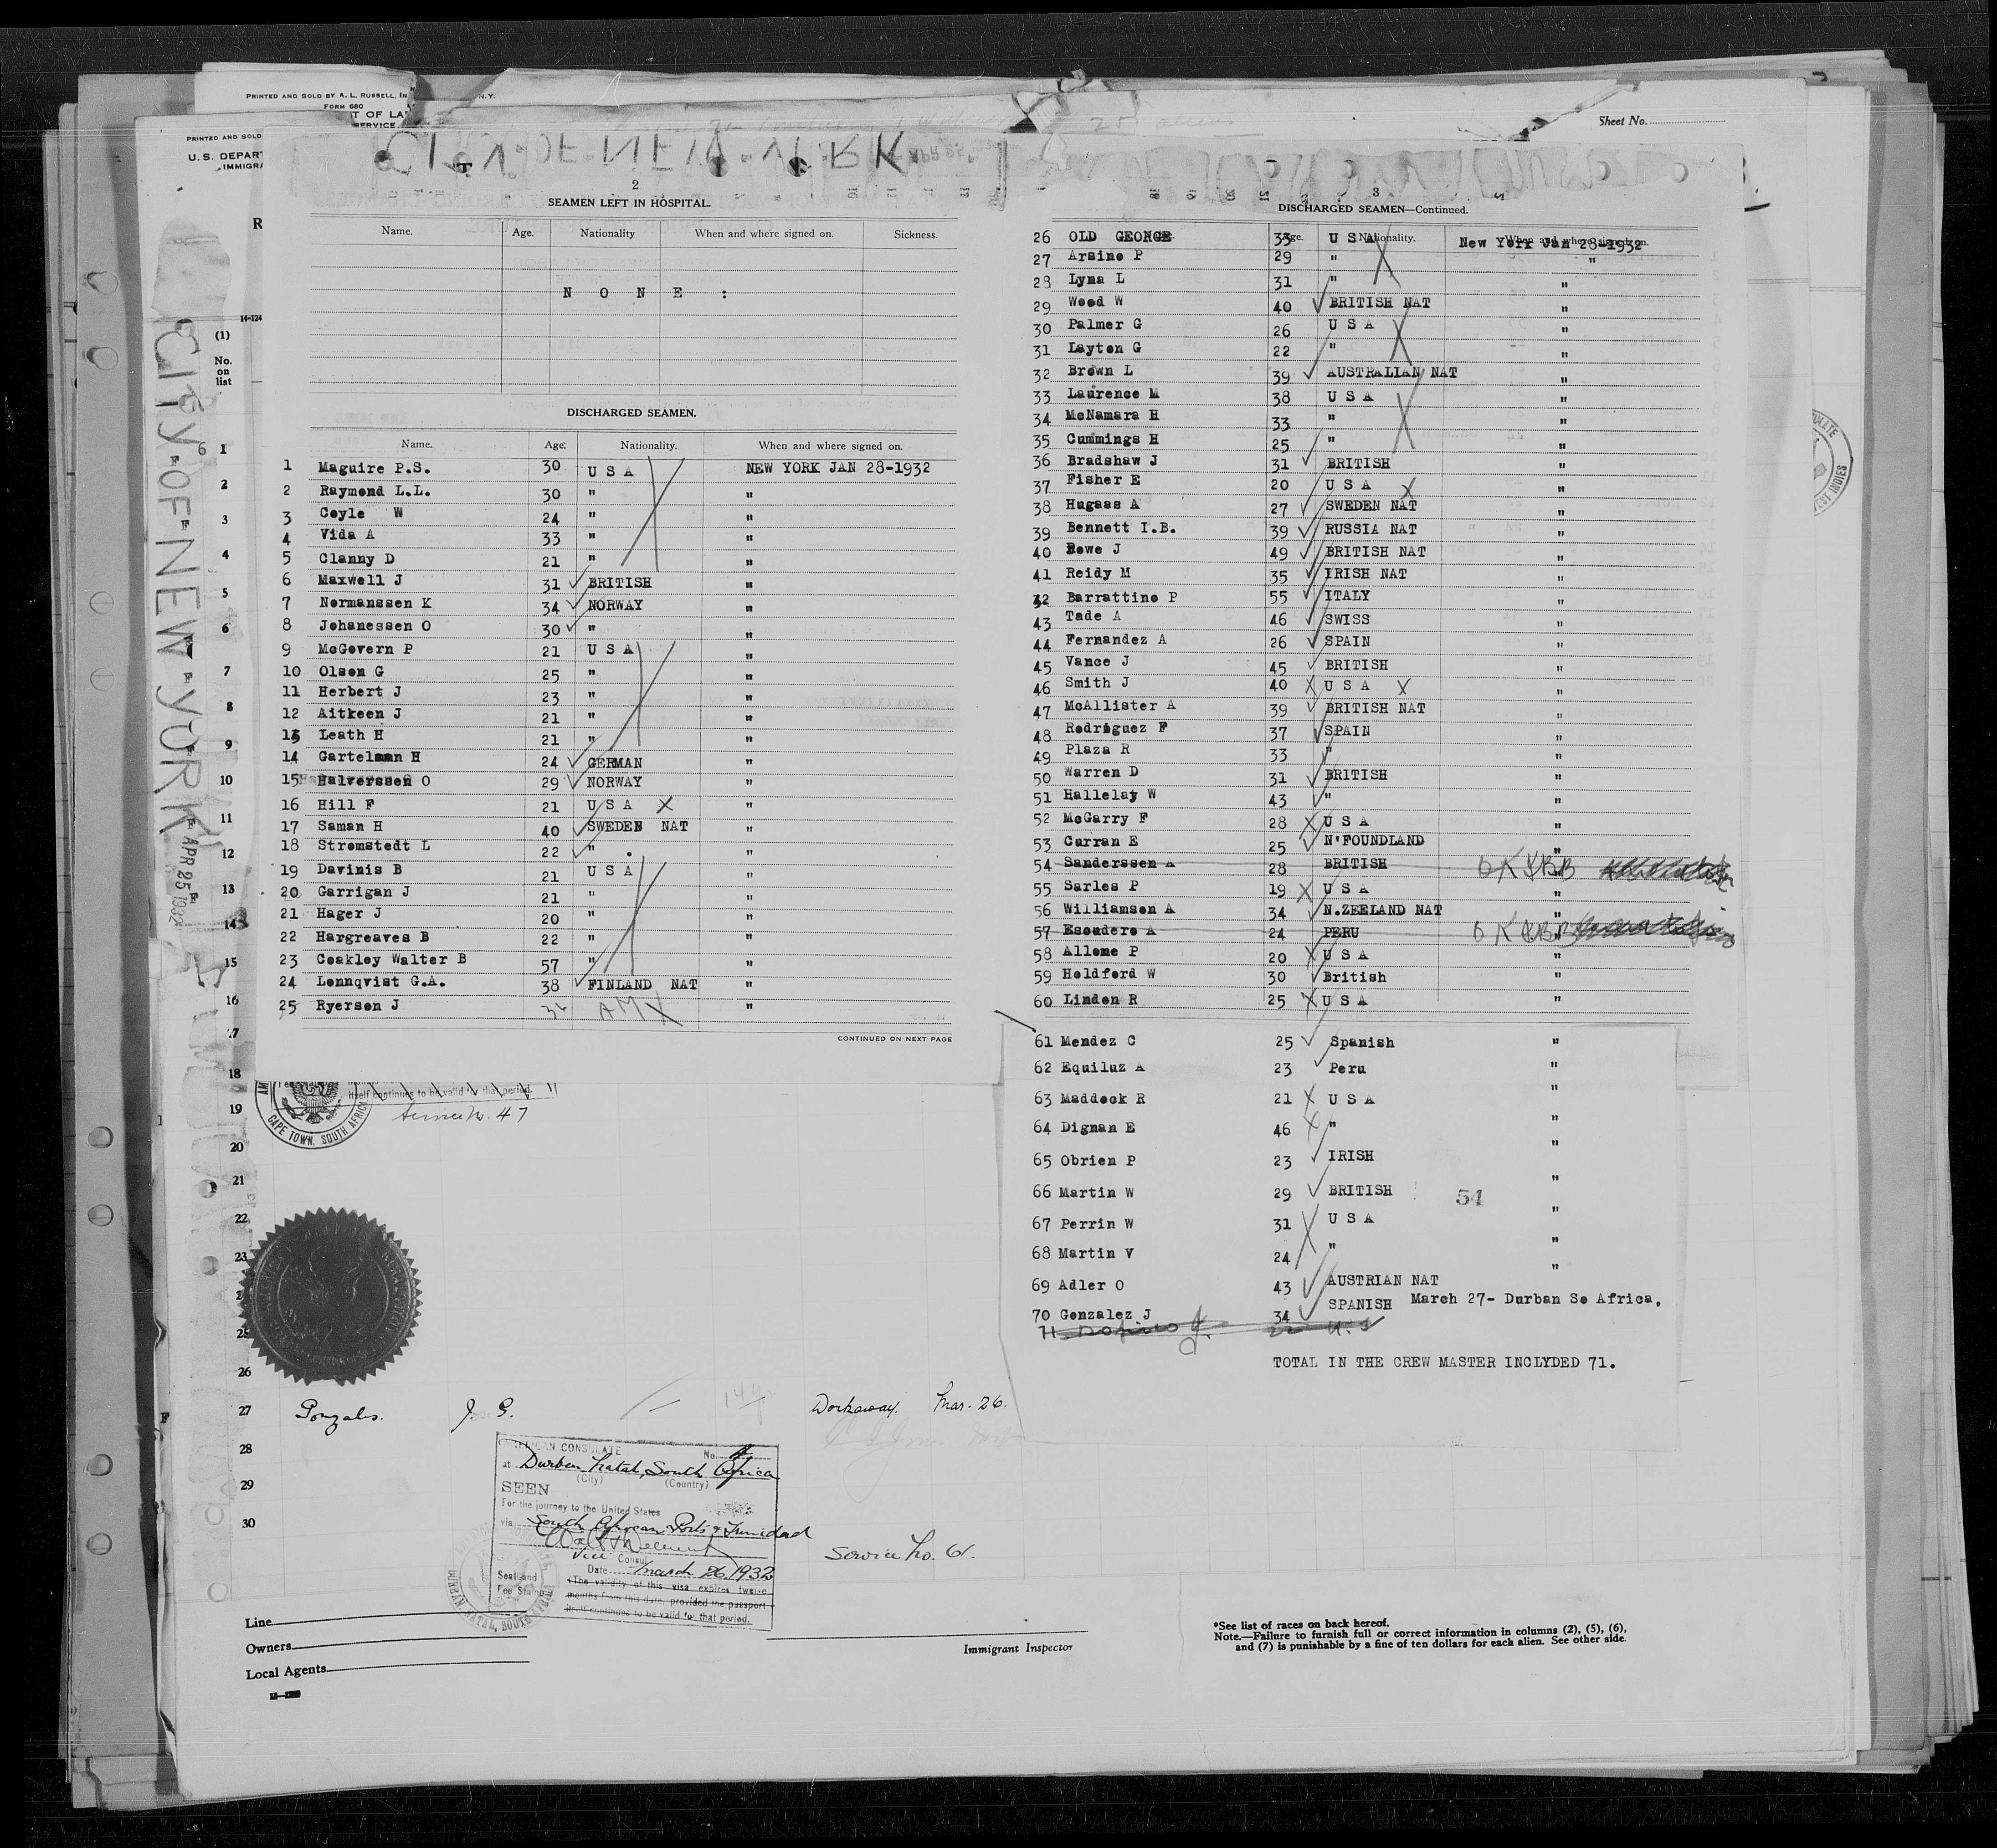 PRINTED AND SOLD BY A. L. RUSSELL, IN
N.Y.
FORM 680
T OF LA
SERVICE
PRINTED AND SOLD
U.S. DEPART
IMMIGRA
Sheet No.
CITY OF NEW YORK
CITY-OF-NEW-YORK
APR 25 1932
14-124
(1)
No.
on
list
2
SEAMEN LEFT IN HOSPITAL.
Name. Age. Nationality When and where signed on. Sickness.
N O N E :
DISCHARGED SEAMEN.
Name. Age. Nationality. When and where signed on.
1 Maguire P.S. 30 U S A NEW YORK JAN 28-1932
2 Raymond L.L. 30 " "
3 Coyle W 24 " "
4 Vida A 33 " "
5 Clanny D 21 " "
6 Maxwell J 31 ✓ BRITISH "
7 Normanssen K 34 ✓ NORWAY "
8 Johanessen O 30 ✓ " "
9 McGovern P 21 U S A "
10 Olsen G 25 " "
11 Herbert J 23 " "
12 Aitkeen J 21 " "
13 Leath H 21 " "
14 Gartelman H 24 ✓ GERMAN "
15 Halverssen O 29 ✓ NORWAY "
16 Hill F 21 U S A X "
17 Saman H 40 ✓ SWEDEN NAT "
18 Stromstedt L 22 ✓ " . "
19 Davinis B 21 U S A "
20 Garrigan J 21 " "
21 Hager J 20 " "
22 Hargreaves B 22 " "
23 Coakley Walter B 57 " "
24 Lonnqvist G.A. 38 ✓ FINLAND NAT "
25 Ryerson J AM X "
CONTINUED ON NEXT PAGE
3
DISCHARGED SEAMEN—Continued.
Age. Nationality. When and where signed on.
26 OLD GEORGE 35 U S A New York Jan 28-1932
27 Arsino P 29 " "
28 Lyna L 31 " "
29 Wood W 40 ✓ BRITISH NAT "
30 Palmer G 26 U S A X "
31 Layton G 22 " "
32 Brown L 39 ✓ AUSTRALIAN NAT "
33 Laurence M 38 U S A "
34 McNamara H 33 " "
35 Cummings H 25 " "
36 Bradshaw J 31 ✓ BRITISH "
37 Fisher E 20 U S A X "
38 Hugaas A 27 ✓ SWEDEN NAT "
39 Bennett I.B. 39 ✓ RUSSIA NAT "
40 Rowe J 49 ✓ BRITISH NAT "
41 Reidy M 35 ✓ IRISH NAT "
42 Barrattino P 55 ✓ ITALY "
43 Tade A 46 ✓ SWISS "
44 Fernandez A 26 ✓ SPAIN "
45 Vance J 45 ✓ BRITISH "
46 Smith J 40 X U S A X "
47 McAllister A 39 ✓ BRITISH NAT "
48 Rodriguez F 37 ✓ SPAIN "
49 Plaza R 33 " "
50 Warren D 31 ✓ BRITISH "
51 Hallelay W 43 ✓ " "
52 McGarry F 28 X U S A "
53 Curran E 25 ✓ N'FOUNDLAND "
54 Sanderssen A 28 BRITISH " OK
55 Sarles P 19 X U S A "
56 Williamson A 34 ✓ N.ZEELAND NAT "
57 Escudero A 24 PERU " OK
58 Allome P 20 X U S A "
59 Holdford W 30 ✓ British "
60 Linden R 25 X U S A "
61 Mendez C 25 ✓ Spanish "
62 Equiluz A 23 ✓ Peru "
63 Maddock R 21 X U S A "
64 Dignan E 46 X " "
65 Obrien P 23 ✓ IRISH "
66 Martin W 29 ✓ BRITISH 54 "
67 Perrin W 31 U S A "
68 Martin V 24 " "
69 Adler O 43 ✓ AUSTRIAN NAT "
70 Gonzalez J 34 ✓ SPANISH March 27- Durban So Africa.
71
TOTAL IN THE CREW MASTER INCLYDED 71.
6 1
2
3
4
5
6
7
8
9
10
11
12
13
14
15
16
17
18
19
20
21
22
23
25
26
27 Gonzales. J. G. Workaway. Mar. 26.
28
29
30
itself continues to be valid for that period.
Service No. 47
CAPE TOWN, SOUTH AFRICA
AMERICAN CONSULATE No.
at Durban Natal, South Africa
(City) (Country)
SEEN
For the journey to the United States
via South African Ports & Trinidad
Vice Consul
Date March 26, 1932
Seal and
Fee Stamp
(The validity of this visa expires twelve
months from this date, provided the passport
itself continues to be valid for that period.
DURBAN, NATAL, SOUTH AFRICA
Service No. 61.
Line
Owners
Local Agents
Immigrant Inspector
*See list of races on back hereof.
Note.—Failure to furnish full or correct information in columns (2), (5), (6),
and (7) is punishable by a fine of ten dollars for each alien. See other side.
WEST INDIES